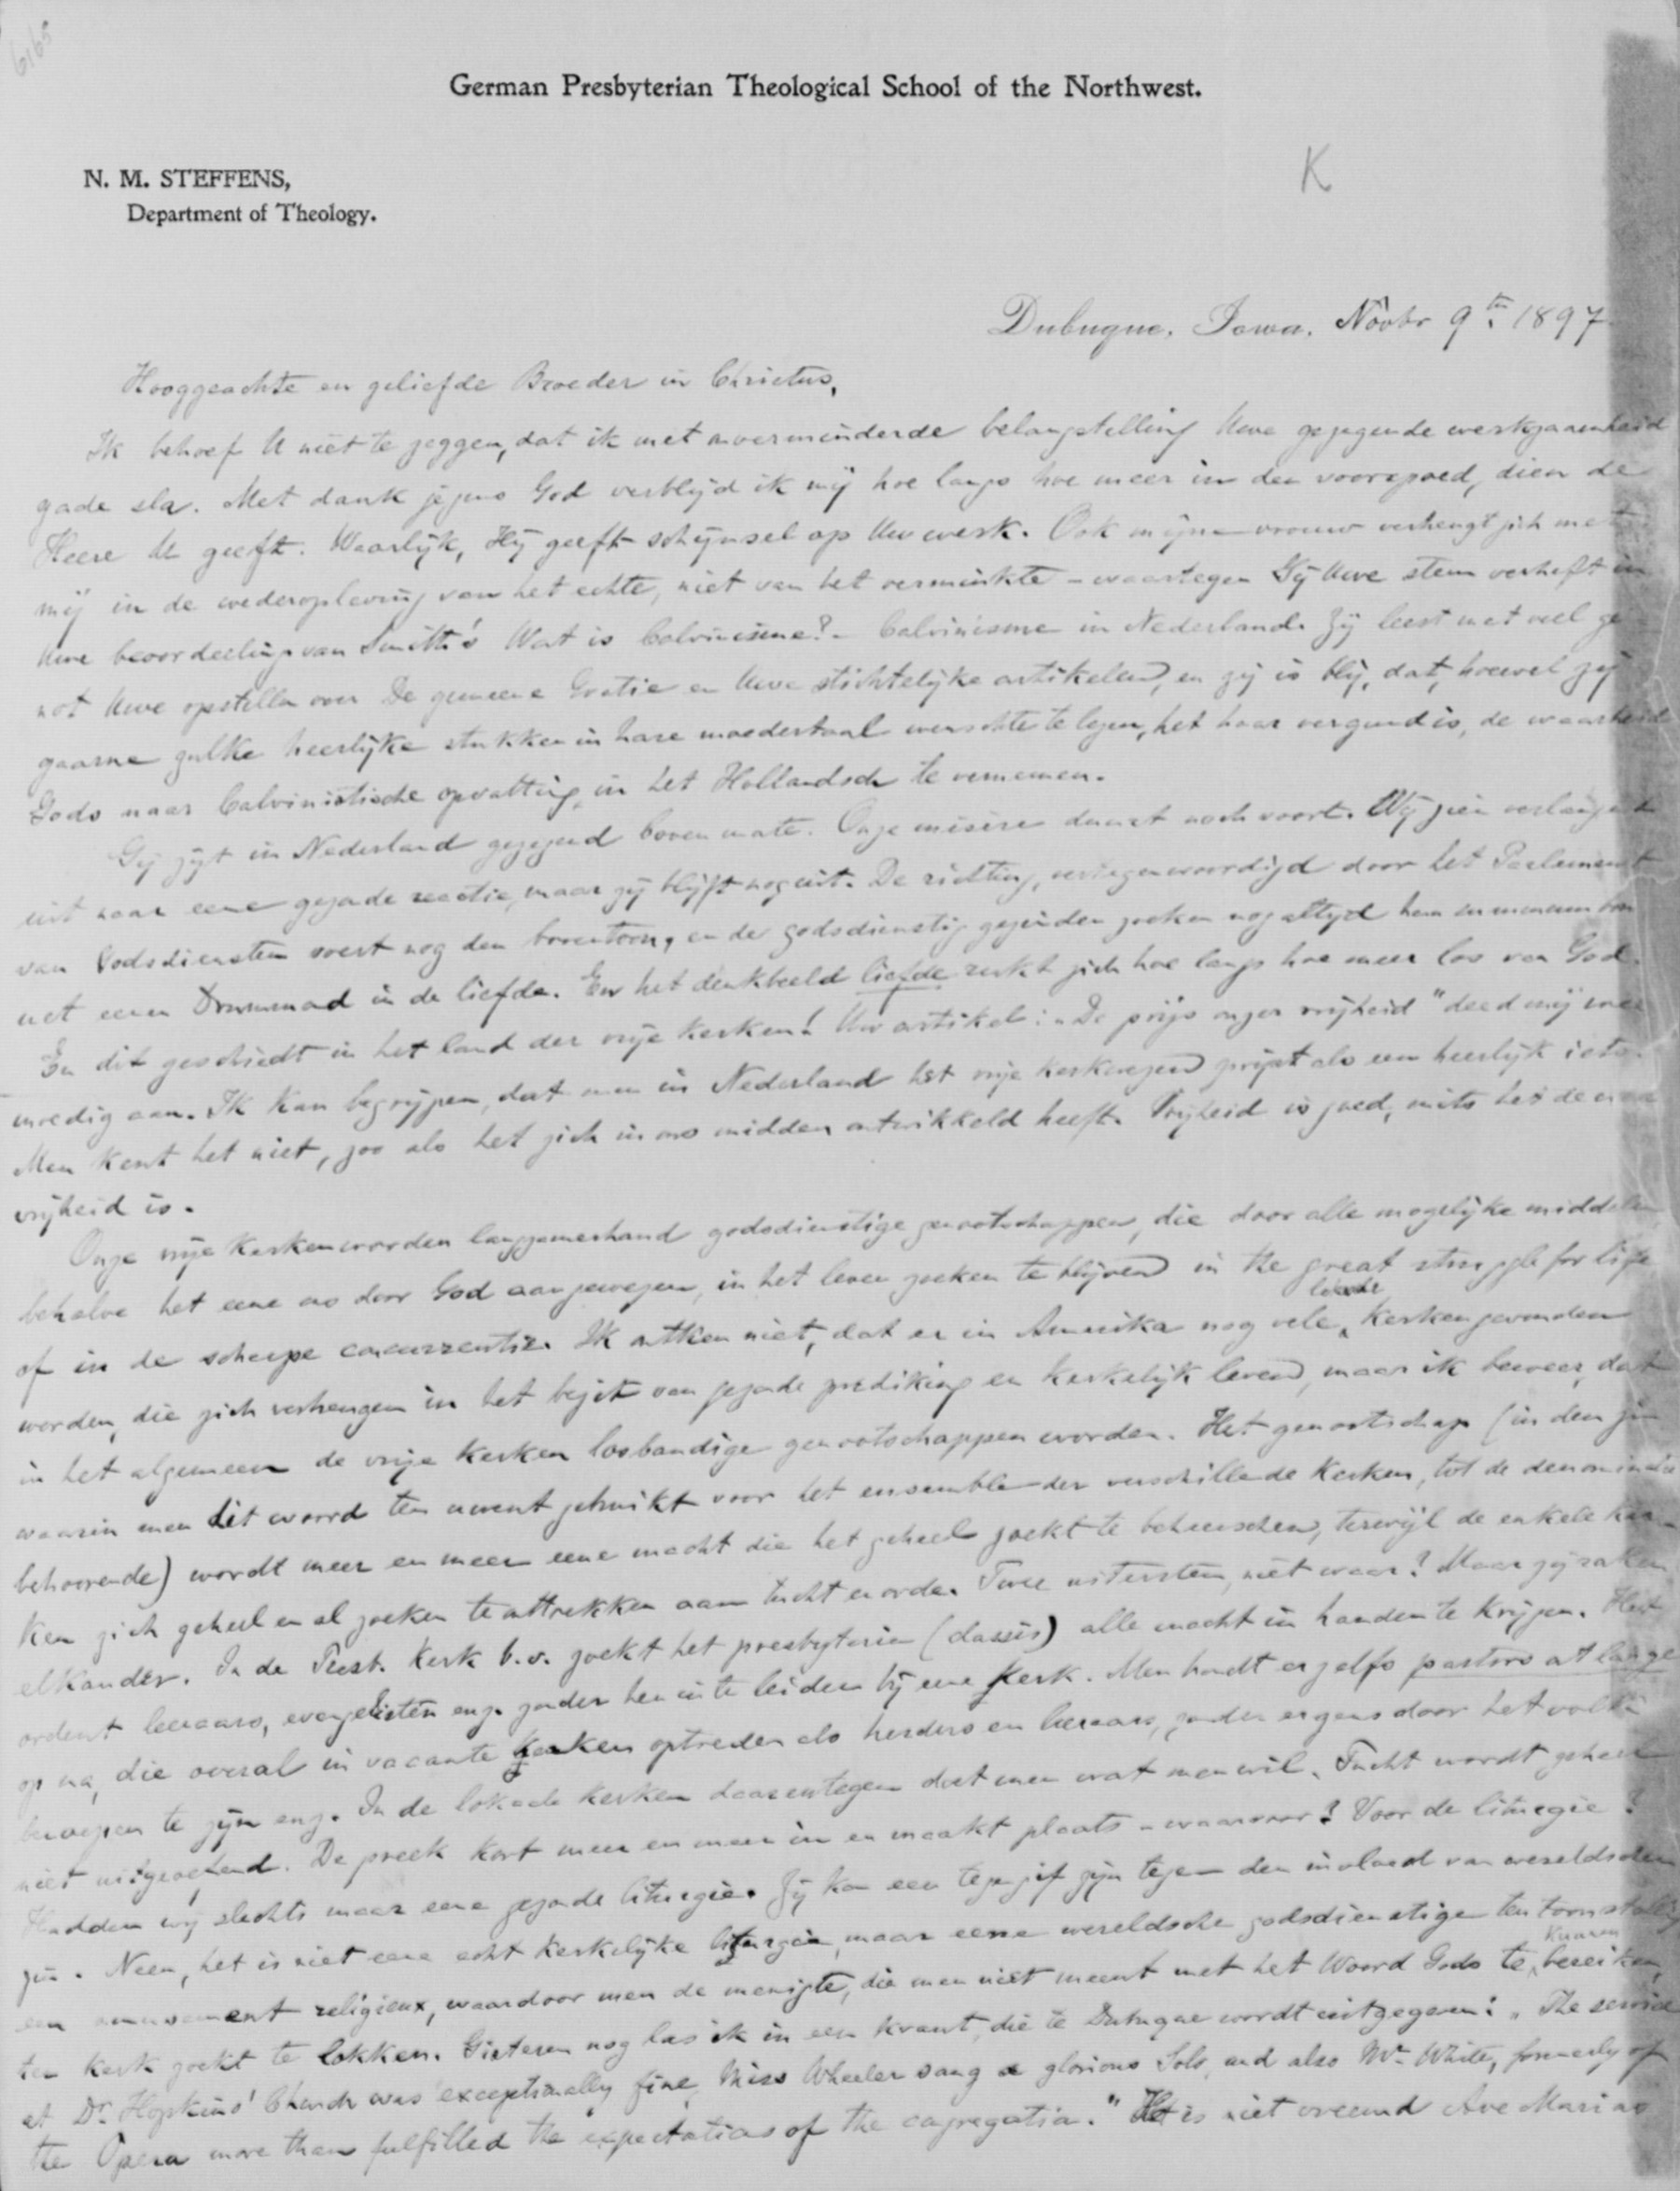 6165
German Presbyterian Theological School of the Northwest.
K
N. M. STEFFENS,
Department of Theology.
Dubuque, Iowa, Novbr 9th 1897
Hooggeachte en geliefde Broeder in Christus,
Ik behoef U niet te zeggen, dat ik met onverminderde belangstelling Uwe gezegende werkzaamheid
gade sla. Met dank jegens God verblijd ik mij hoe langs hoe meer in den voorspoed, dien de
Heere U geeft. Waarlijk, Hij geeft schijnsel op Uw werk. Ook mijne vrouw verheugt zich met
mij in de wederopleving van het echte, niet van het verminkte - waartegen Gij Uwe stem verheft in
Uwe beoordeeling van Smitt's Wat is Calvinisme? - Calvinisme in Nederland. Zij leest met veel ge
not Uwe opstellen over De gemeene Gratie en Uwe stichtelijke artikelen, en zij is blij, dat, hoewel zij
gaarne zulke heerlijke stukken in hare moedertaal wenschte te lezen, het haar vergund is, de waarheid
Gods naar Calvinistische opvatting in het Hollandsch te vernemen.
Gij zijt in Nederland gezegend boven mate. Onze misère duurt noch voort. Wij zien verlangend
uit naar eene gezonde reactie, maar zij blijft nog uit. De richting, vertegenwoordigd door het Parlement
van Godsdiensten voert nog den boventoon, en de godsdienstig gezinden zoeken nog altijd hun summum bon
met een Drummond in de liefde. En het denkbeeld liefde rukt zich hoe langs hoe meer los van God.
En dit geschiedt in het land der vrije kerken! Uw artikel: "De prijs onzer vrijheid" deed mij wee
moedig aan. Ik kan begrijpen, dat men in Nederland het vrije kerkwezen prijst als een heerlijk iets.
Men kent het niet, zoo als het zich in ons midden ontwikkeld heeft. Vrijheid is goed, mits het de ware
vrijheid is.
Onze vrije kerken worden langzamerhand godsdienstige genootschappen, die door alle mogelijke middelen,
behalve het eene ons door God aangewezen, in het leven zoeken te blijven in the great struggle for life
of in de scherpe concurrentie. Ik ontken niet, dat er in Amerika nog vele locale kerken gevonden
worden, die zich verheugen in het bezit van gezonde prediking en kerkelijk leven, maar ik beweer, dat
in het algemeen de vrije kerken losbandige genootschappen worden. Het genootschap (in den zin
waarin men dit woord ten uwent gebruikt voor het ensemble der verschillende kerken, tot de denominatie
behoorende) wordt meer en meer eene macht die het geheel zoekt te beheerschen, terwijl de enkele ker-
ken zich geheel en al zoeken te onttrekken aan tucht en orde. Twee uitersten, niet waar? Maar zij raken
elkander. In de Presb. Kerk b.v. zoekt het presbyterie (classis) alle macht in handen te krijgen. Het
ordent leeraars, evangelisten enz. zonder hen in te leiden bij eene kerk. Men houdt er zelfs pastors at large
op na, die overal in vacante kerken optreden als herders en leeraars, zonder ergens door het volk
beroepen te zijn enz. In de lokale kerken daarentegen doet men wat men wil. Tucht wordt geheel
niet uitgeoefend. De preek kort meer en meer in en maakt plaats - waarvoor? Voor de liturgie?
Hadden wij slechts maar eene gezonde liturgie. Zij kon een tegengif zijn tegen den invloed van wereldschen
zin. Neen, het is niet eene echt kerkelijke liturgie, maar eene wereldsche godsdienstige tentoonstelling
een amusement religieux, waardoor men de menigte, die men niet meent met het Woord Gods te kunnen bereiken,
ter kerk zoekt te lokken. Gisteren nog las ik in een krant, die te Dubuque wordt uitgegeven: "The service
at Dr. Hopkins' Church was exceptionally fine, Miss Wheeler sang a glorious Solo, and also Mr. White, formerly of
the Opera more than fulfilled the expectations of the congregation." Het is niet vreemd Ave Marias